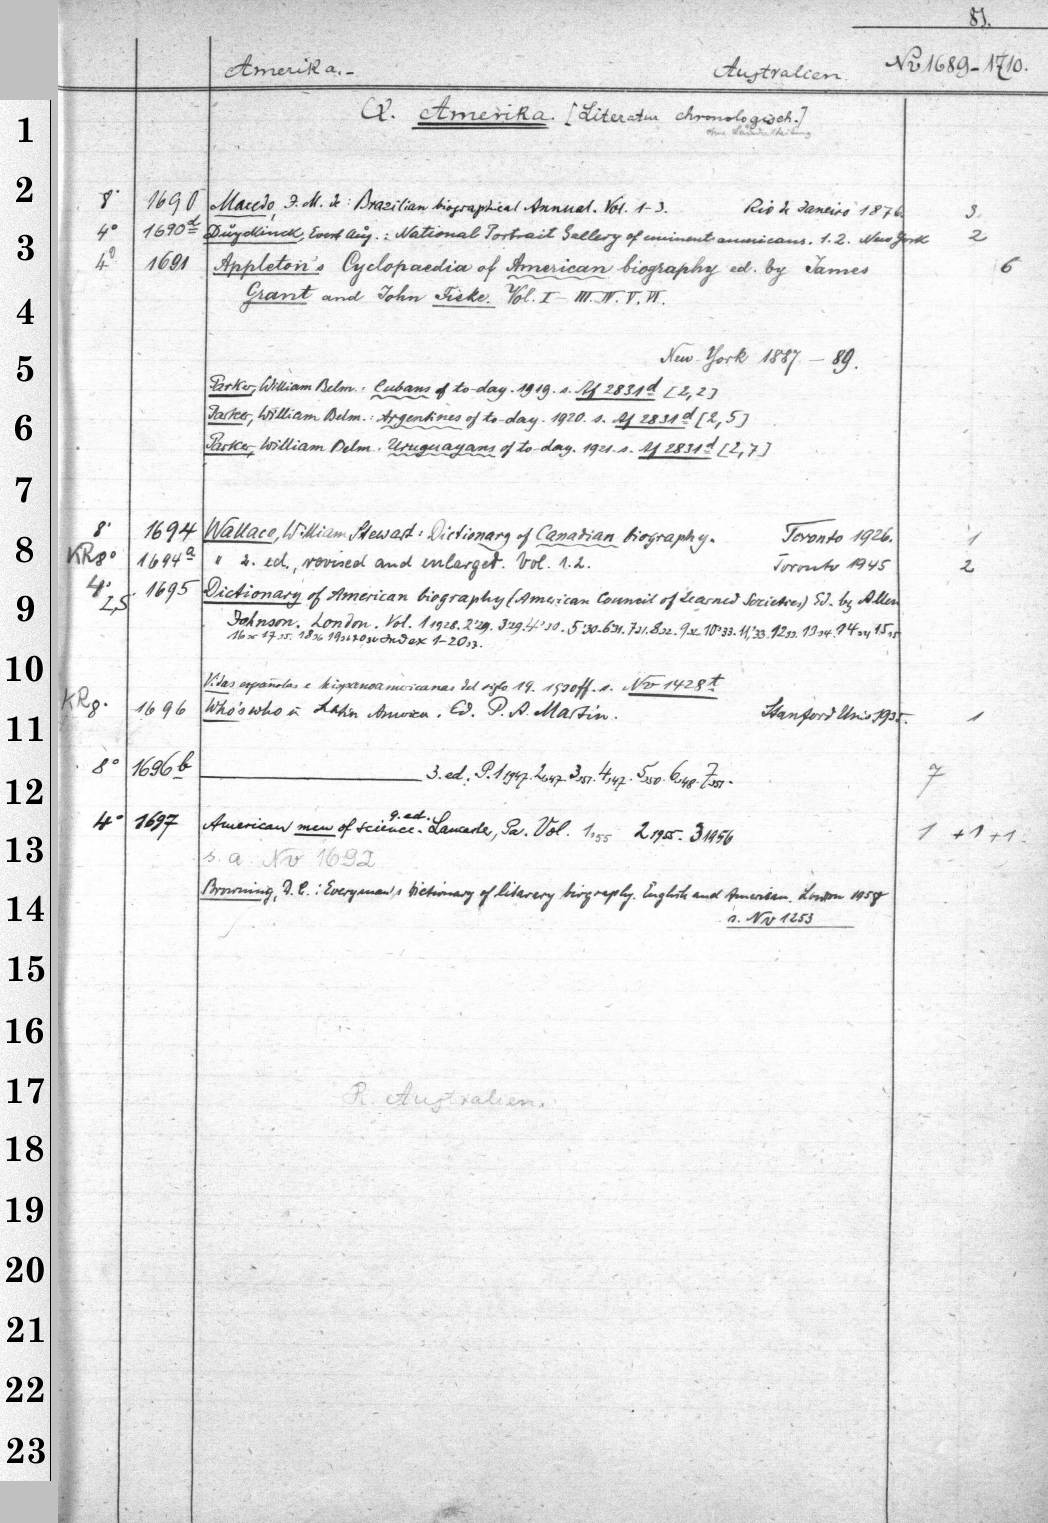 81.
Amerika.- Australien. Nv 1689-1710.
Q. Amerika. [Literatur chronologisch.]
8° 1690 Macedo, J. M. de: Brazilian biographical Annual. Vol. 1-3. Rio de Janeiro 1876. 3
4° 1690d Duyckinck, Evert Aug.: National Portrait Gallery of eminent americans. 1.2. New York 2
4° 1691 Appleton's Cyclopaedia of American biography ed. by James 6
Grant and John Fiske. Vol. I - III. IV. V. VI.
New-York 1887 - 89.
Parker, William Belm.: Cubans of to-day. 1919. s. Af 2831d [2,2]
Parker, William Belm.: Argentines of to-day. 1920. s. Af 2831d [2,5]
Parker, William Belm. Uruguayans of to-day. 1921. s. Af 2831d [2,7]
8° 1694 Wallace, William Stewart: Dictionary of Canadian biography. Toronto 1926. 1
KR 8° 1694a " 2. ed., revised and enlarged. Vol. 1.2. Toronto 1945 2
4° 1695 Dictionary of American biography (American Council of Learned Societies) Ed. by Allen
2,5.
Johnson. London. Vol. 1 1928. 2 '29. 3 '29. 4 '30. 5 '30. 6 31. 7 31. 8 32. 9 32. 10 '33. 11 '33. 12 33. 13 34. 14 34. 15 35
16 35 17 35. 18 36 19 36 20 36 Index 1-20 37.
Vidas españolas e hispanoamericanas del siglo 19. 1930ff. s. Nv 1428t
KR 8. 1696 Who's who in Latin America. Ed. P. A. Martin. Stanford Univ. 1935. 1
8° 1696b 3. ed. P. 1 1947. 2 47 3 51. 4 47. 5 50. 6 48. 7 51. 7
4° 1697 American men of science. 9. ed. Lancaster, Pa. Vol. 1. 55 2 1955. 3 1956 1 +1 +1.
s. a. Nv 1692
Browning, D. C.: Everyman's Dictionary of literary biography. English and American. London 1958
s. Nv 1253
R. Australien.
1
2
3
4
5
6
7
8
9
10
11
12
13
14
15
16
17
18
19
20
21
22
23